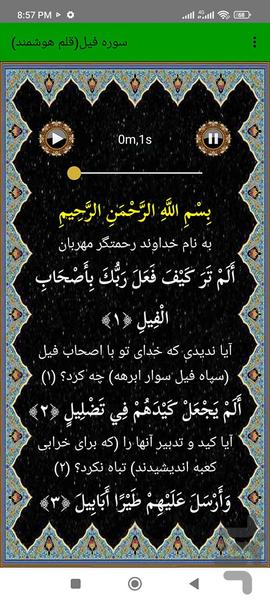 8:57 PM
68
سوره فیل(قلم هوشمند)
0m,1s
بِسْمِ اللَّهِ الرَّحْمَنِ الرَّحِيمِ
به نام خداوند رحمتگر مهربان
أَلَمْ تَرَ كَيْفَ فَعَلَ رَبُّكَ بِأَصْحَابِ
الْفِيلِ ﴿۱﴾
آیا ندیدی که خدای تو با اصحاب فیل
(سپاه فیل سوار ابرهه) چه کرد؟ (۱)
أَلَمْ يَجْعَلْ كَيْدَهُمْ فِي تَضْلِيلٍ ﴿۲﴾
آیا کید و تدبیر آنها را (که برای خرابی
کعبه اندیشیدند) تباه نکرد؟ (۲)
وَأَرْسَلَ عَلَيْهِمْ طَيْرًا أَبَابِيلَ ﴿۳﴾